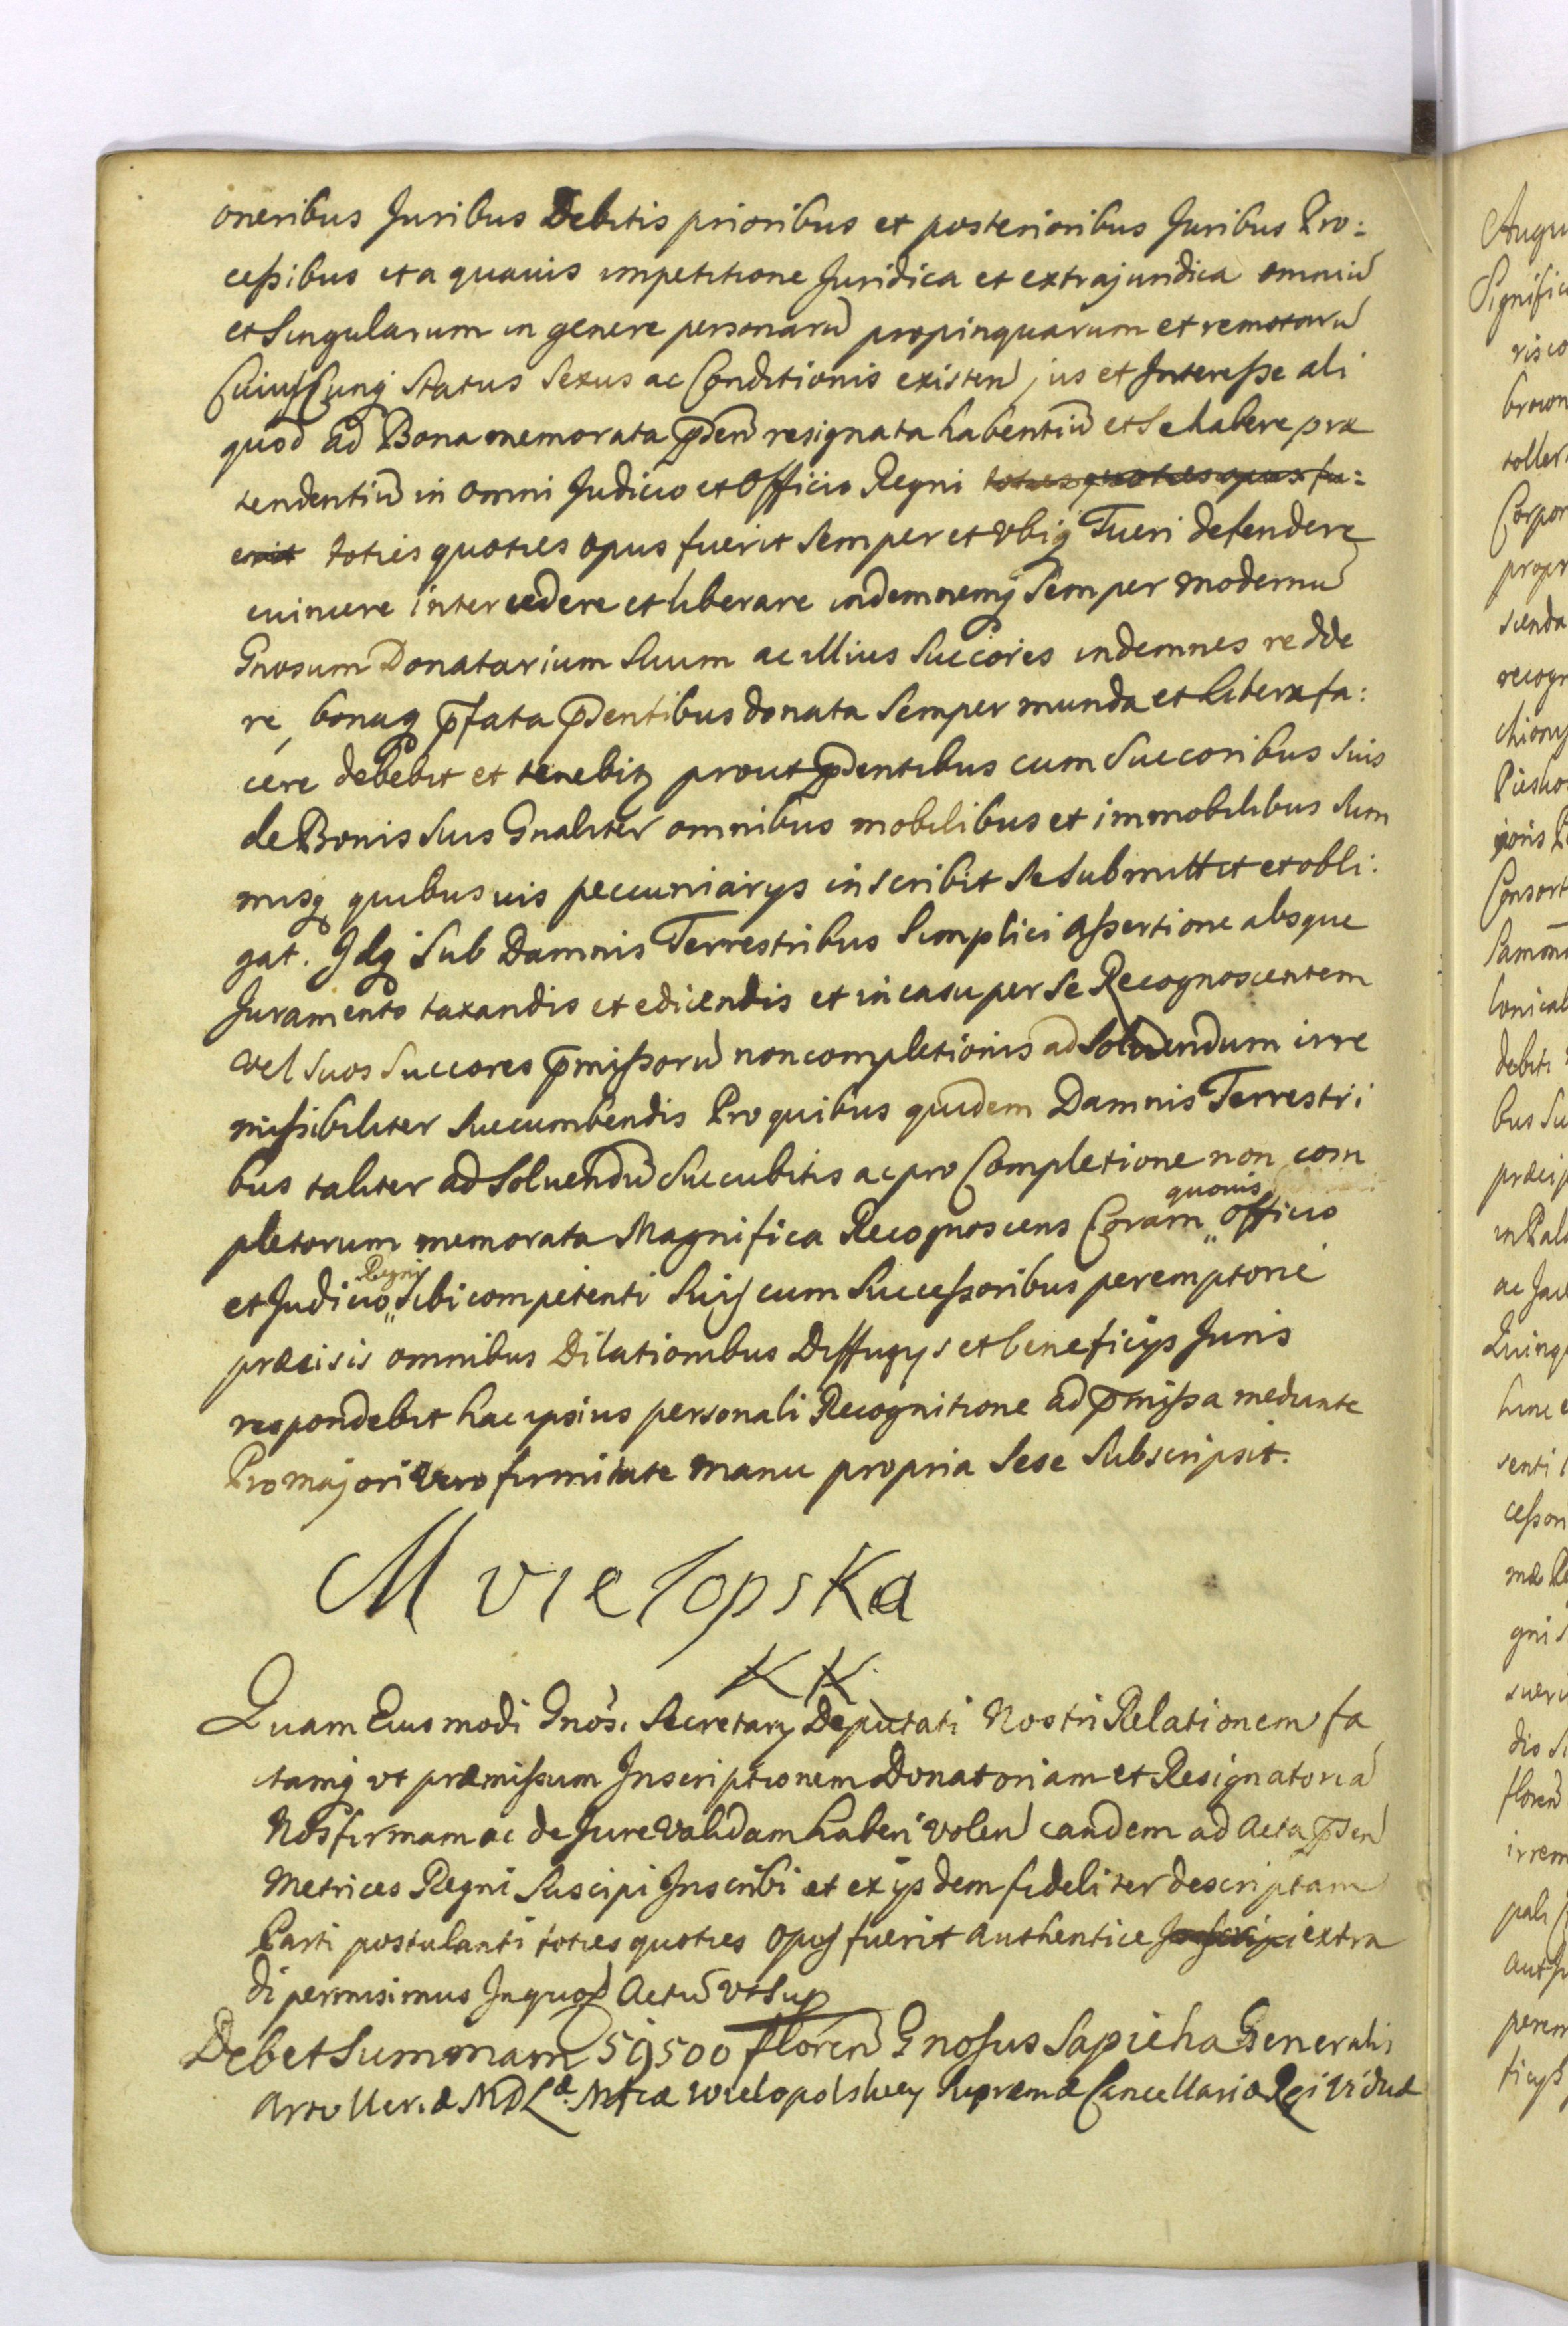 oneribus Juribus Debitis prioribus et posterioribus Juribus Pro:
cessibus et a quavis impetitione Juridica et extrajuridica omniū
et Singularum in genere personarū propinquarum et remotarū
CuiusCunq Status Sexus ac Conditionis existen, jus et Interesse ali
quod ad Bona memorata p̄sen resignata habentiū et Se habere præ
tendentiū in omni Judicio et Officio Regni toties quoties opus fu:
erit toties quoties opus fuerit Semper et Ubiq Tueri defendere
evincere intercedere et liberare indemnemq Semper modernū
Gnosum Donatarium Suum ac illius Succores indemnes redde
re, bonaq p̄fata p̄sentibus donata Semper munda et libera fa:
cere debebit et tenebit prout p̄sentibus cum Succoribus Suis
de Bonis Suis Gnaliter omnibus mobilibus et immobilibus Sum
misq quibusvis pecuniarys inscribit Se Submittit et obli:
gat. Idq Sub Damnis Terrestribus Simplici assertione absque
Juramento taxandis et edicendis et in casu per Se Recognoscentem
vel Suos Succores p̄missorū non completionis ad Soluendum irre
missibiliter Succumbendis Pro quibus quidem Damnis Terrestri
bus taliter ad Soluendū Succubitis ac pro Completione non com
pletorum memorata Magnifica Recognoscens Coram quovis Officio
et Judicio Regni Sibi competenti Suis cum Successoribus peremptorie
præcisis omnibus Dilationibus Diffugys et beneficijs Juris
respondebit hac ipsius personali Recognitione ad p̄missa mediante
Pro majori vero firmitate manu propria Sese Subscripsit.
M vielopska
KK.
Quam Eiusmodi Gnōsi Secretary Deputati Nostri Relationem fa
ctamq ut præmissum Inscriptionem Donatoriam et Resignatoriā
Nos firmam ac de Jure Validam haberi Volen eandem ad Acta p̄sen
Metrices Regni Suscipi Inscribi et ex ijsdem fideliter descriptam
Parti postulanti toties quoties opus fuerit authentice extra
di permisimus In quo Actū ut Sup
Debet Summam 59500 floren Gnosus Sapieha Generalis
M D L Mficæ Wielopolskiey Supremæ Cancellariæ Rgi Viduæ